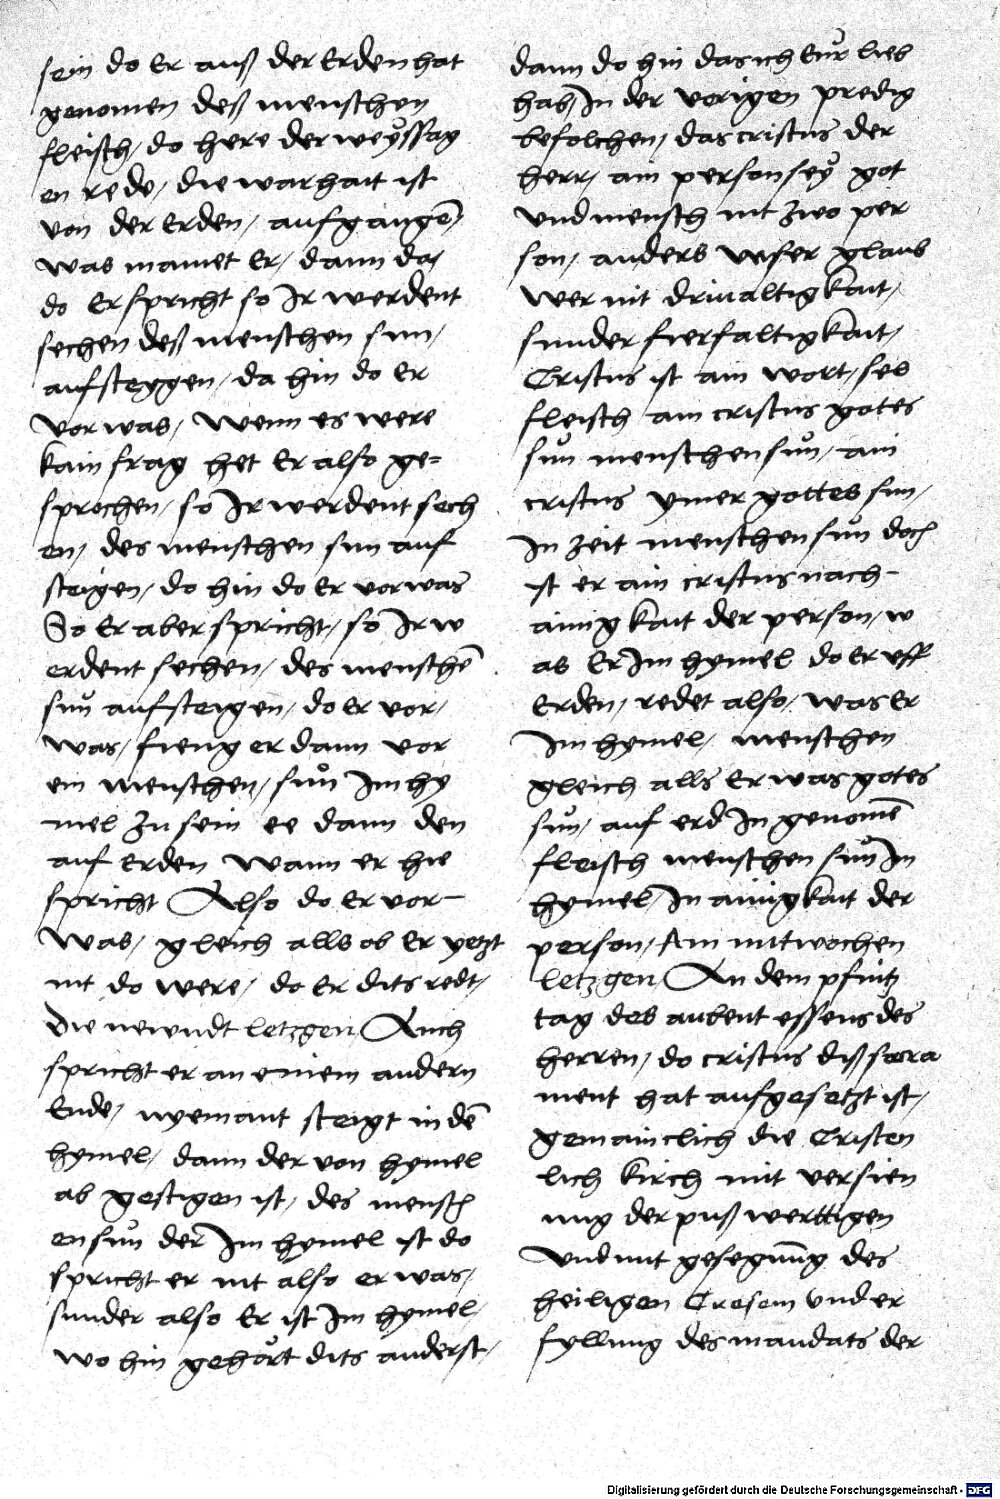 sein do Er auß der Erden hat
genomen deß menschen
fleisch / do here der weÿssag
en rede / die warhait ist
von der Erden / aufgangē /
was mainet Er / dann da /
do Er spricht so Ir werdent
sechen deß menschen sun /
aufsteygen / da hin do Er
vor was / Wenn es were
kain frag het Er also ge=
sprochen / so Ir werdent sech
en / des menschen sun auf
steigen / do hin do Er vor was
So Er aber spricht / so Ir w
erdent sechen / des menschē
sun aufsteigen / do Er vor /
was / fieng er dann vor
ein menschen / sun Im hy
mel zu sein ee dann den
auf Erden Wann er hie
spricht Also do Er vor-
was / gleich alls ob Er yetzt
nit do were / do Er dits redt /
Die newndt letzgen / Auch
spricht er an einem andern
Ende / nyemant steigt in dē
hymel / dann der von hymel
ab gestigen ist / des mensch
en sun der Im hymel ist do
spricht er nit also er was /
sunder also Er ist Im hymel /
wo hin gehört dits anderst /
dann do hin das ich Eur lieb
hab / In der vorigen predig
befolchen / das cristus der
herr / ain person seÿ got
vnd mensch nit zwo per
son / anders vnser glaub
wer nit drivaltigkait /
sunder fierfaltigkait /
Cristus ist ain wort / sel
fleisch ain cristus gotes
sun menschen sun / ain
cristus ymer gottes sun /
In zeit menschen sun doch
ist er ain cristus nach-
ainigkait der person / w
as Er Im hymel do Er vff
Erden / redet also / was Er
Im hymel / menschen
gleich alls Er was gotes
sun / auf erd In genomē
fleisch menschen sun In
hymel / In ainigkait der
person / Am mitwochen
letzgen / An dem pfintz
tag des aubent essens des
herren / do cristus diß sacra
ment hat aufgesetzt ist /
gemainclich die Cristen
lich kirch mit versien
ung der puß werttigen
Vnd mit gesegnūg des
heiligen Cresem vnd er
fyllung des mandats der
Digitalisierung gefördert durch die Deutsche Forschungsgemeinschaft - DFG